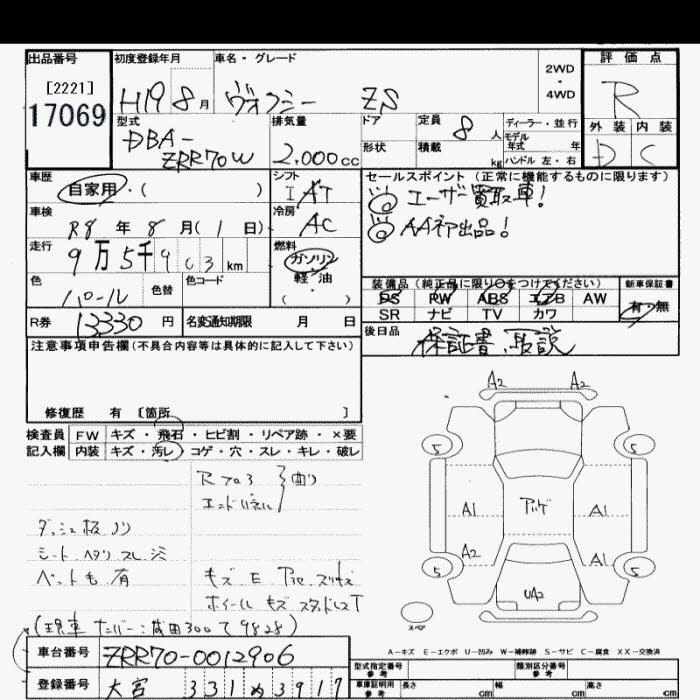 出品番号 初度登録年月 車名・グレード 2WD・4WD 評価点
[2221]
17069 H19 8月 ヴォクシー ZS R
型式 排気量 ドア 定員 8人 ディーラー・並行 外装 内装
モデル年式 年
DBA-ZRR70W 2,000cc 形状 積載 kg ハンドル 左・右 D C
車歴 シフト セールスポイント(正常に機能するものに限ります)
自家用・( ) IAT ◎ユーザー買取車!
車検 冷房 ◎AA初出品!
R8年8月(1日) AC
走行 燃料
9万5千903km ガソリン
軽・油
( )
色 色替 色コード 装備品(純正品に限り○をつけてください) 新車保証書
パール PS PW ABS エアB AW 有・無
SR ナビ TV カワ
R券 13330円 名変通知期限 月 日 後日品
保証書、取説
注意事項申告欄(不具合内容等は具体的に記入して下さい)
修復歴 有〔箇所 〕
A2 A2
検査員 FW キズ・飛石・ヒビ割・リペア跡・×要
記入欄 内装 キズ・汚レ・コゲ・穴・スレ・キレ・破レ
5 5
Rフロア 曲り
エンドパネル
A1 アハゲ A1
ダッシュ板ノリ
シート ヘタリ スレ シミ A2 A1
ペット毛 有 キズ E
5 UA2 5
ホイールキズ スタッドレスT
スペア
(現車ナンバー:成田300て9828)
A-キズ E-エクボ U-凹み W-補修跡 S-サビ C-腐食 XX-交換済
車台番号 ZRR70-0012906
型式指定番号 参考 類別区分番号 参考
登録番号 大宮 331ぬ3917
車庫証明用 参考 長さ cm 幅 cm 高さ cm